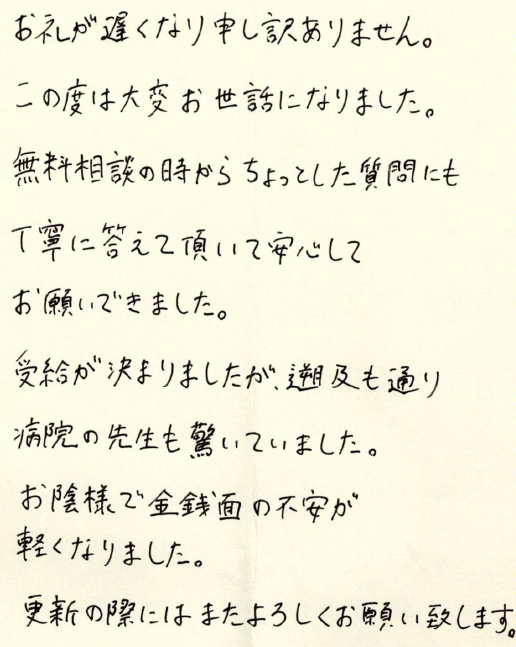 お礼が遅くなり申し訳ありません。
この度は大変お世話になりました。
無料相談の時からちょっとした質問にも
丁寧に答えて頂いて安心して
お願いできました。
受給が決まりましたが、遡及も通り
病院の先生も驚いていました。
お陰様で金銭面の不安が
軽くなりました。
更新の際にはまたよろしくお願い致します。